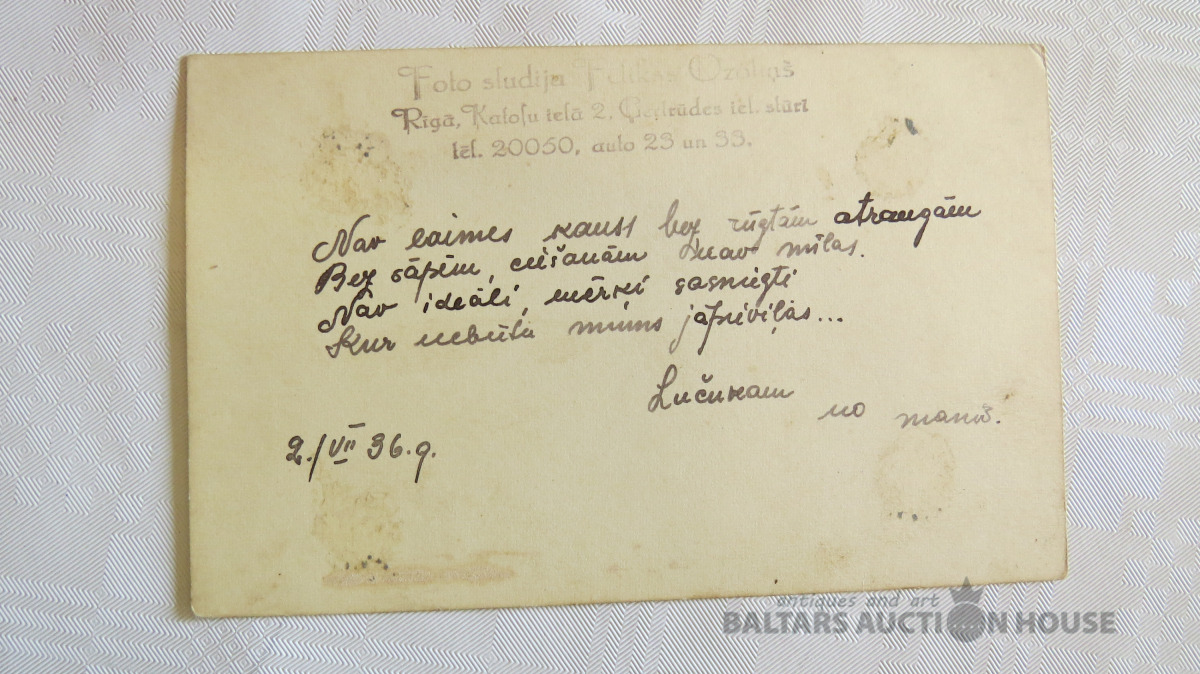 Foto studija Felikss Ozoliņš
Rīgā, Katoļu ielā 2, Ģertrūdes iel. stūrī
tēl. 20050, auto 23 un 33.
Nav laimes kauss bez rūgtām atraugām
Bez sāpēm, ciešanām nav mīlas.
Nav ideāli, mērķi sasniegti
Kur nebūtu mums jāpieviļas...
Lučukam
no manis.
2./VII 36.g.
antiques and art
BALTARS AUCTION HOUSE